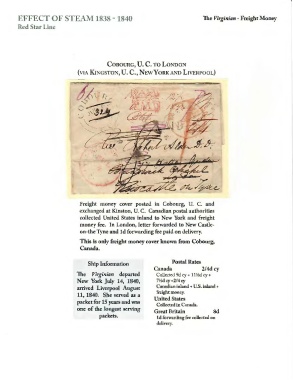 EFFECT OF STEAM 1838 - 1840
The Virginian - Freight Money
Red Star Line
COBOURG, U. C. TO LONDON
(VIA KINGSTON, U. C., NEW YORK AND LIVERPOOL)
Newcastle on Tyne
Freight money cover posted in Cobourg, U. C. and
exchanged at Kinston, U. C. Canadian postal authorities
collected United States inland to New York and freight
money fee. In London, letter forwarded to New Castle-
on-the Tyne and 1d forwarding fee paid on delivery.
This is only freight money cover known from Cobourg,
Canada.
Ship Information
The Virginian departed
New York July 14, 1840,
arrived Liverpool August
11, 1840. She served as a
packet for 15 years and was
one of the longest serving
packets.
Postal Rates
Canada 2/4d cy
Canadian inland + U.S. inland +
freight money.
United States
Collected in Canada.
Great Britain 8d
1d forwarding fee collected on
delivery.